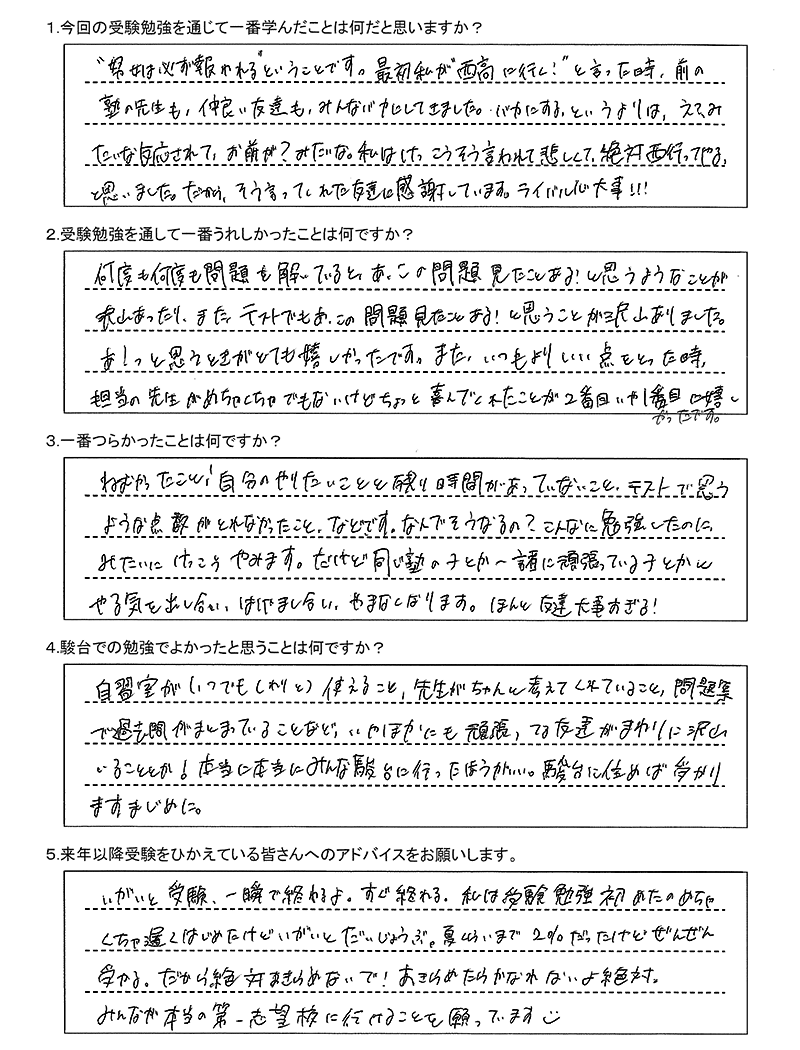 1.今回の受験勉強を通じて一番学んだことは何だと思いますか？
"努力は必ず報われる"ということです。最初私が"西高に行く！"と言った時、前の
塾の先生も、仲良い友達も、みんなバカにしてきました。バカにする、というよりは、え〜み
たいな反応されて、お前が？みたいな。私はけっこうそう言われて悲しくて、絶対西行ってやる、
と思いました。だから、そう言ってくれた友達に感謝しています。ライバル心大事!!!
2.受験勉強を通して一番うれしかったことは何ですか？
何度も何度も問題を解いていると、あ、この問題見たことある！と思うようなことが
沢山あったり、また、テストでもあ、この問題見たことある！と思うことが沢山ありました。
あ！っと思うときがとても嬉しかったです。また、いつもよりいい点をとった時、
担当の先生がめちゃくちゃでもないけどちょっと喜んでくれたことが2番目いや1番目に嬉し
かったです。
3.一番つらかったことは何ですか？
ねむかったこと！自分のやりたいことと残り時間があっていないこと、テストで思う
ような点数がとれなかったこと、などです。なんでそうなるの？こんなに勉強したのに、
みたいにけっこうやみます。だけど同じ塾の子とか一諸に頑張っている子とかと
やる気を出し合い、はげまし合い、やまなくなります。ほんと友達大事すぎる！
4.駿台での勉強でよかったと思うことは何ですか？
自習室が(いつでもしわりと)使えること、先生がちゃんと考えてくれていること、問題集
で過去問がまとまっていることなど、いやほかにも頑張ってる友達がまわりに沢山
いることとか！本当に本当にみんな駿台に行ったほうがいい。駿台に住めば受かり
ますまじめに。
5.来年以降受験をひかえている皆さんへのアドバイスをお願いします。
いがいと受験、一瞬で終わるよ。すぐ終わる。私は受験勉強初めたのめちゃ
くちゃ遅くはじめたけどいがいとだいじょうぶ。夏くらいまで2%だったけどぜんぜん
受かる。だから絶対あきらめないで！あきらめたらかなわないよ絶対。
みんなが本当の第一志望校に行けることを願っています